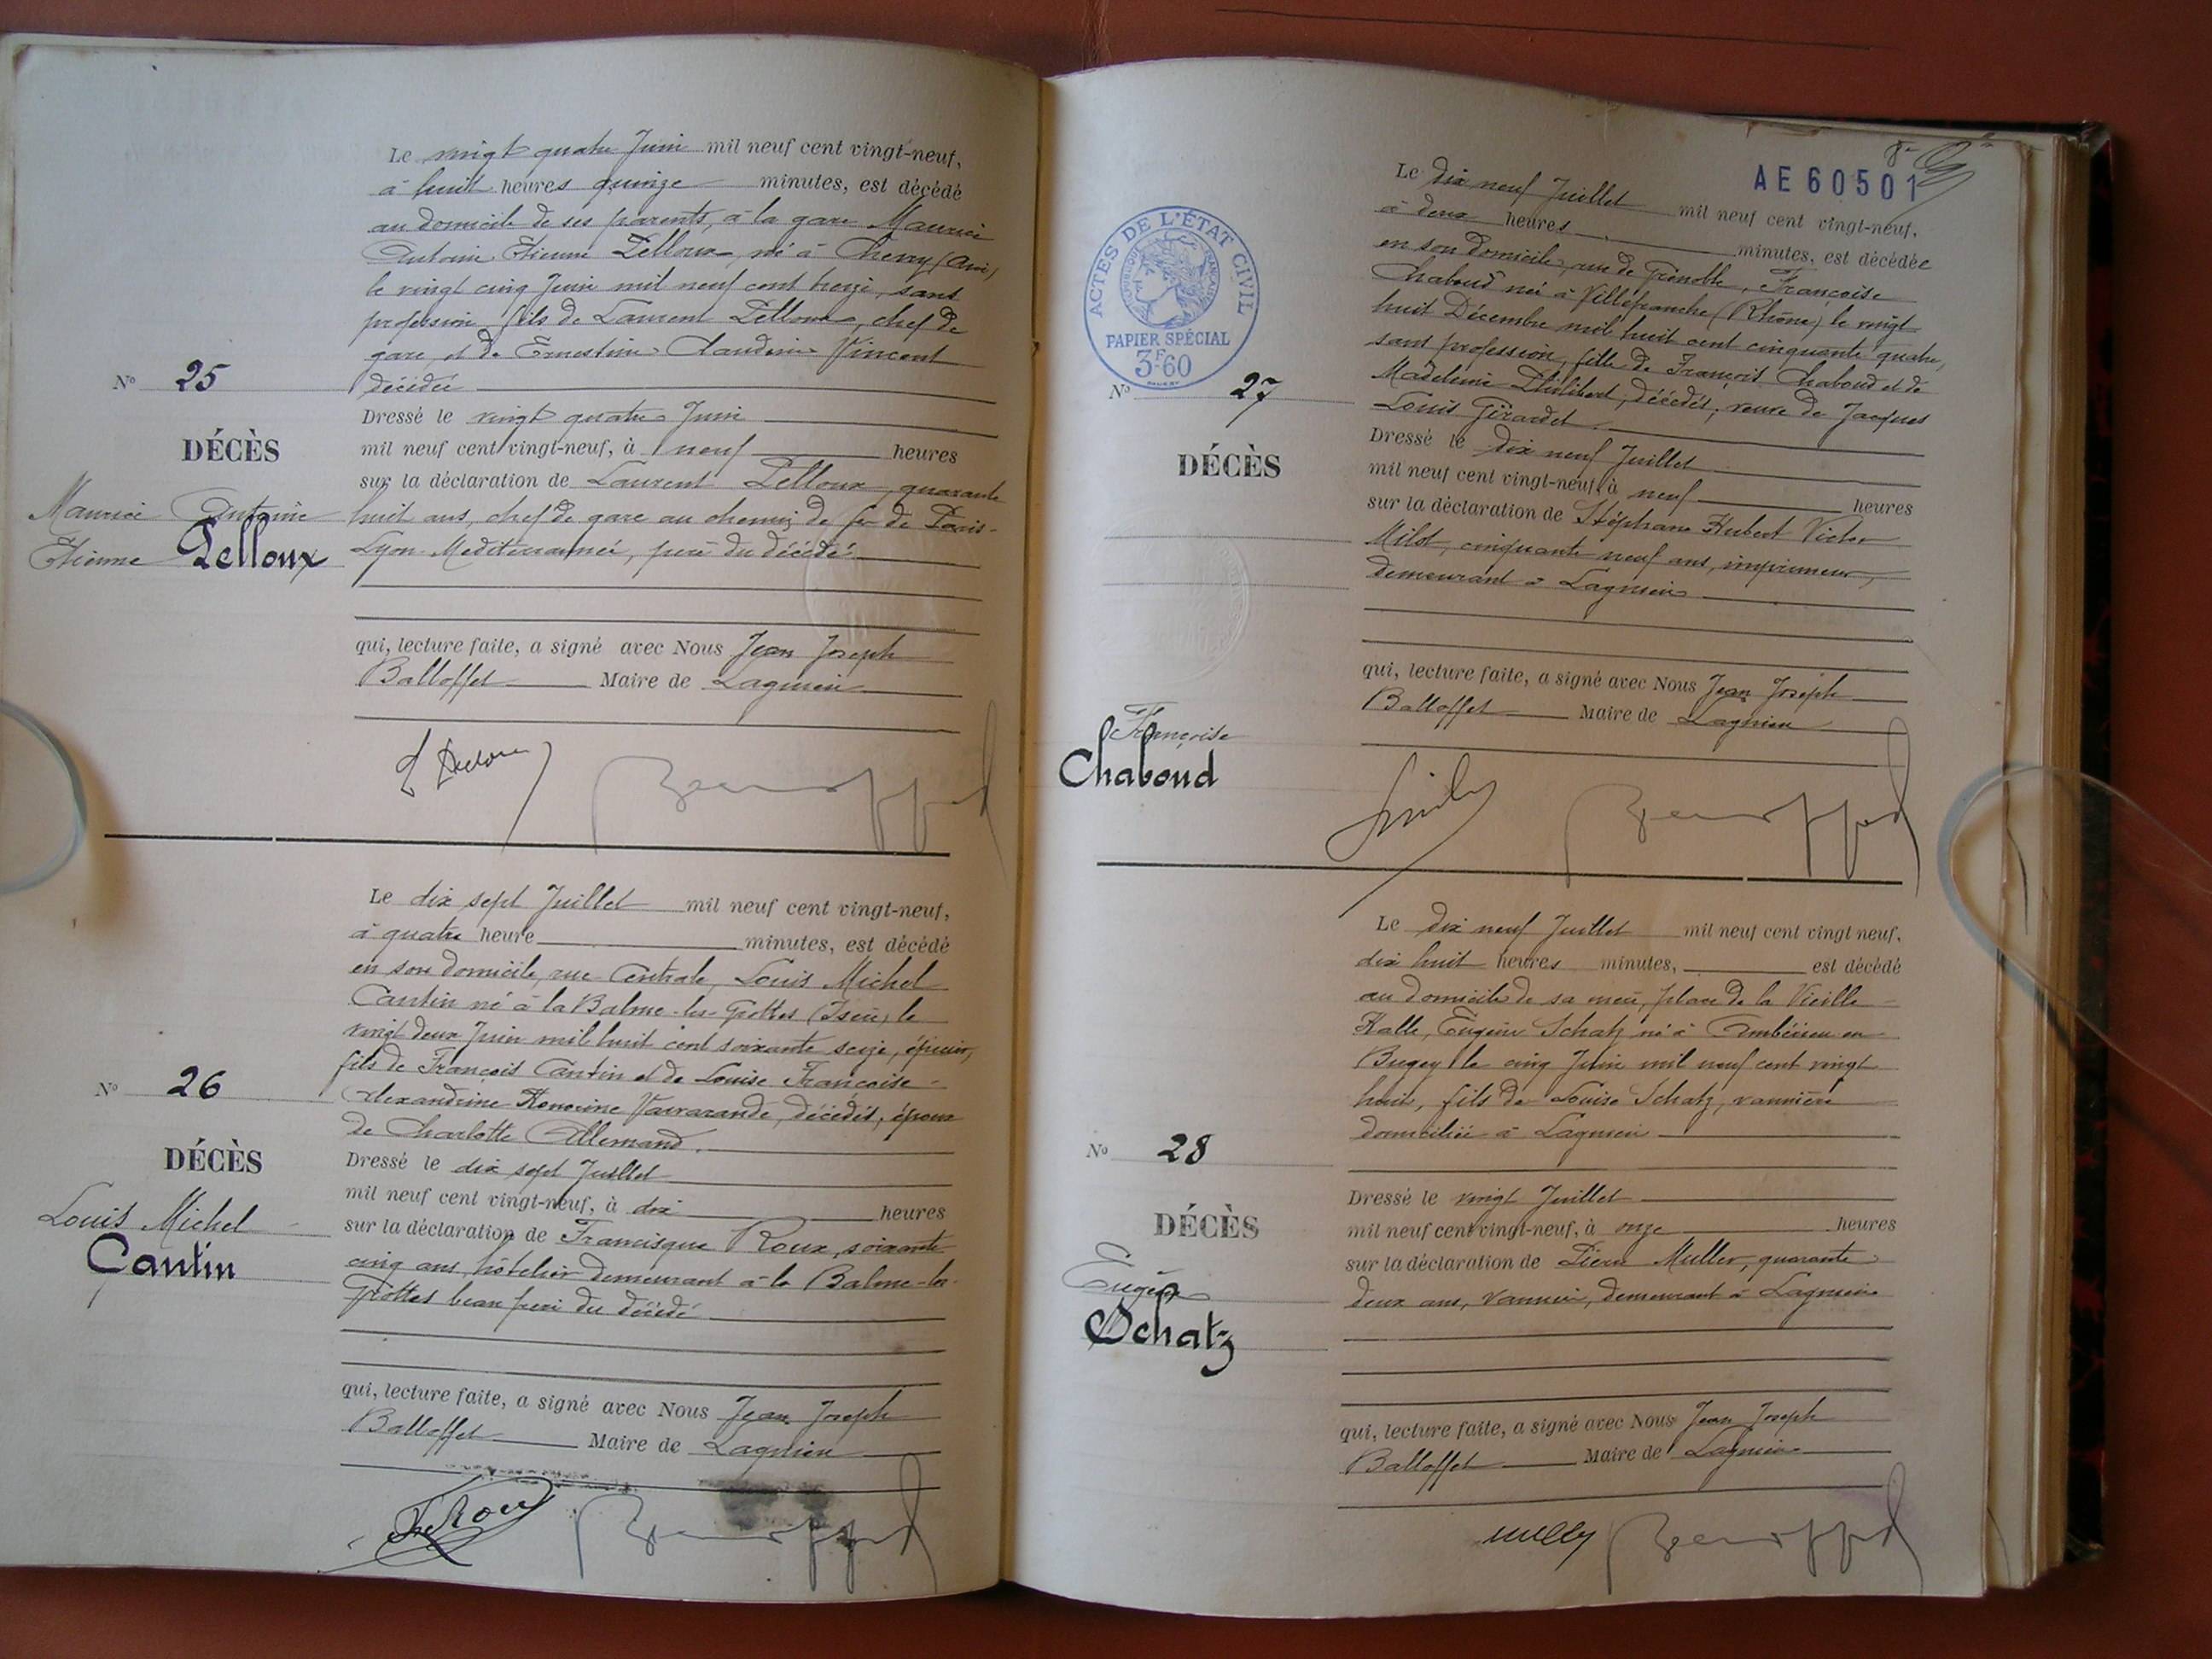 Le vingt quatre Juin mil neuf cent vingt-neuf,
à huit heures quinze minutes, est décédé
au domicile de ses parents, à la gare Maurice
Antoine Etienne Pelloux, né à Chevry (Ain)
le vingt cinq Juin mil neuf cent treize, sans
profession, fils de Laurent Pelloux, chef de
gare et de Ernestine Claudine Vincent
décédée
Nº 25
DÉCÈS
Maurice Antoine
Etienne Pelloux
Dressé le vingt quatre Juin
mil neuf cent vingt-neuf, à neuf heures
sur la déclaration de Laurent Pelloux, quarante
huit ans, chef de gare au chemin de fer de Paris-
Lyon Mediterrannée, père du décédé
qui, lecture faite, a signé avec Nous Jean Joseph
Balloffet Maire de Lagnieu
Le dix sept Juillet mil neuf cent vingt-neuf,
à quatre heure minutes, est décédé
en son domicile, rue Centrale, Louis Michel
Cantin né à la Balme-les-Grottes (Isère) le
vingt deux Juin mil huit cent soixante seize, épicier,
fils de François Cantin et de Louise Françoise
Alexandrine Honorine Varvarande, décédés, époux
de Charlotte Allemand.
Nº 26
DÉCÈS
Louis Michel
Cantin
Dressé le dix sept Juillet
mil neuf cent vingt-neuf, à dix heures
sur la déclaration de Francisque Roux, soixante
cinq ans hôtelier demeurant à la Balme-les-
Grottes beau père du décédé
qui, lecture faite, a signé avec Nous Jean Joseph
Balloffet Maire de Lagnieu
AE 60501
Le dix neuf Juillet mil neuf cent vingt-neuf,
à deux heures minutes, est décédée
en son domicile, rue de Grenoble, Françoise
Chaboud née à Villefranche (Rhône) le vingt
huit Décembre mil huit cent cinquante quatre,
sans profession, fille de François Chaboud et de
Madeleine Philibert, décédés, veuve de Jacques
Louis Girardet.
ACTES DE L'ÉTAT CIVIL
RÉPUBLIQUE FRANÇAISE
PAPIER SPÉCIAL
3F60
Nº 27
DÉCÈS
Françoise
Chaboud
Dressé le dix neuf Juillet
mil neuf cent vingt-neuf, à neuf heures
sur la déclaration de Stéphane Hubert Victor
Milot, cinquante neuf ans, imprimeur,
demeurant à Lagnieu
qui, lecture faite, a signé avec Nous Jean Joseph
Balloffet Maire de Lagnieu
Le dix neuf Juillet mil neuf cent vingt neuf,
dix huit heures minutes, est décédé
au domicile de sa mère, place de la Vieille
Halle, Eugène Schatz né à Ambérieu en
Bugey le cinq Juin mil neuf cent vingt
huit, fils de Louise Schatz, vannière
domiciliée à Lagnieu
Nº 28
DÉCÈS
Eugène
Schatz
Dressé le vingt Juillet
mil neuf cent vingt-neuf, à onze heures
sur la déclaration de Pierre Muller, quarante
deux ans, vannier, demeurant à Lagnieu
qui, lecture faite, a signé avec Nous Jean Joseph
Balloffet Maire de Lagnieu